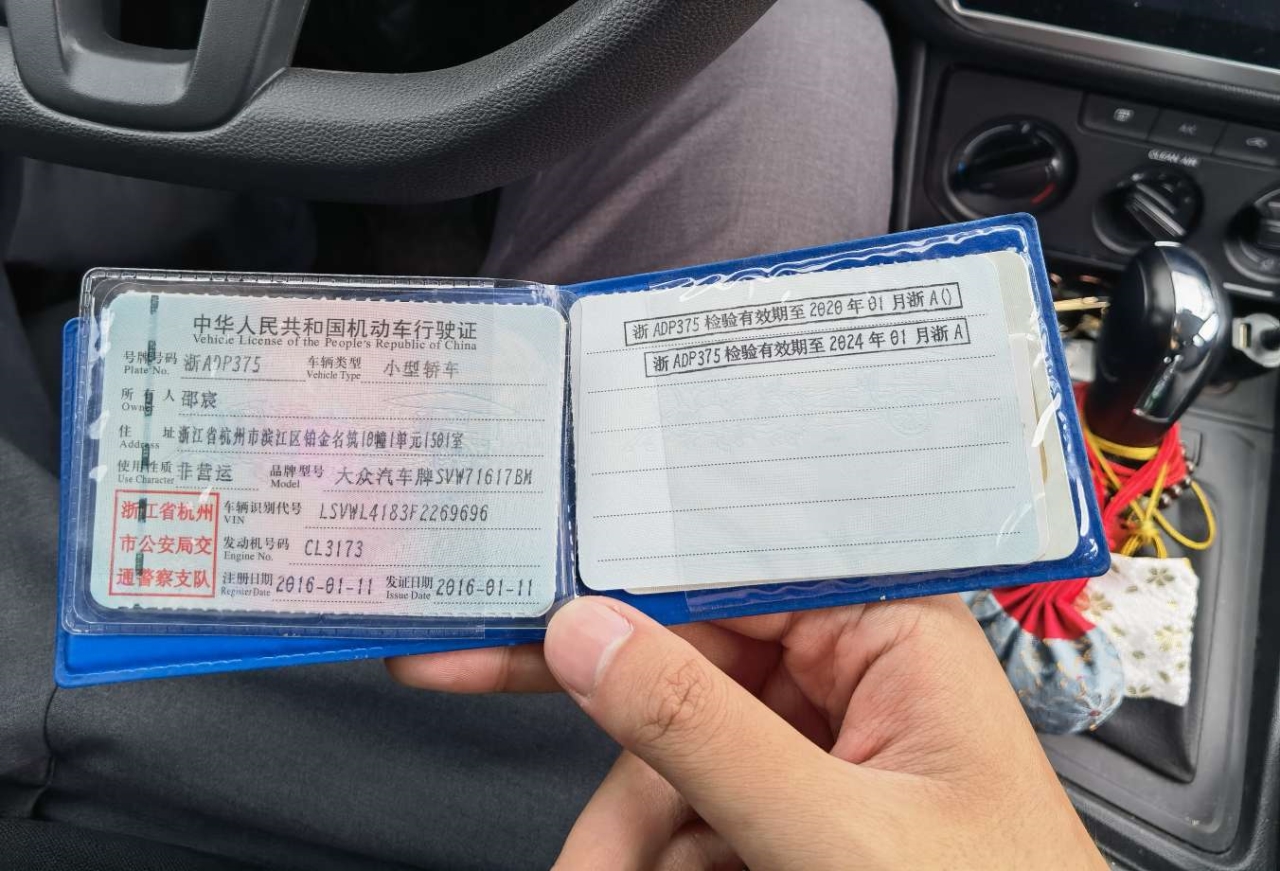 中华人民共和国机动车行驶证
Vehicle License of the People's Republic of China
号牌号码 浙ADP375 车辆类型 小型轿车
Plate No. Vehicle Type
所有人 邵宸
Owner
住址 浙江省杭州市滨江区铂金名筑10幢1单元1501室
Address
使用性质 非营运 品牌型号 大众汽车牌SVW71617BM
Use Character Model
浙江省杭州
市公安局交
通警察支队
车辆识别代号 LSVWL4183F2269696
VIN
发动机号码 CL3173
Engine No.
注册日期 2016-01-11 发证日期 2016-01-11
Register Date Issue Date
浙 ADP375 检验有效期至 2020 年 01 月浙 A()
浙 ADP375 检验有效期至 2024 年 01 月浙 A
A/C
CLEAN AIR